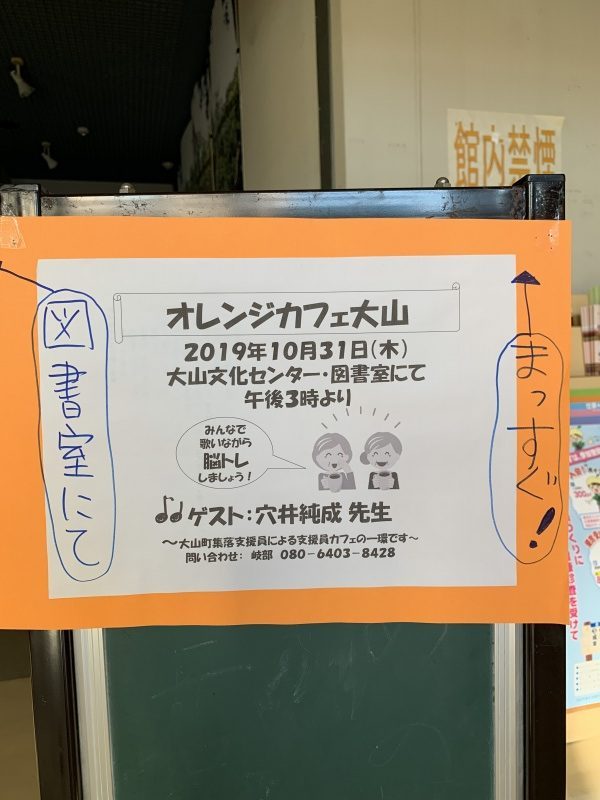 館内禁煙
オレンジカフェ大山
2019年10月31日(木)
大山文化センター・図書室にて
午後3時より
みんなで
歌いながら
脳トレ
しましょう!
ゲスト:穴井純成 先生
〜大山町集落支援員による支援員カフェの一環です〜
問い合わせ: 岐部 080-6403-8428
図書室にて
まっすぐ!
を受けて